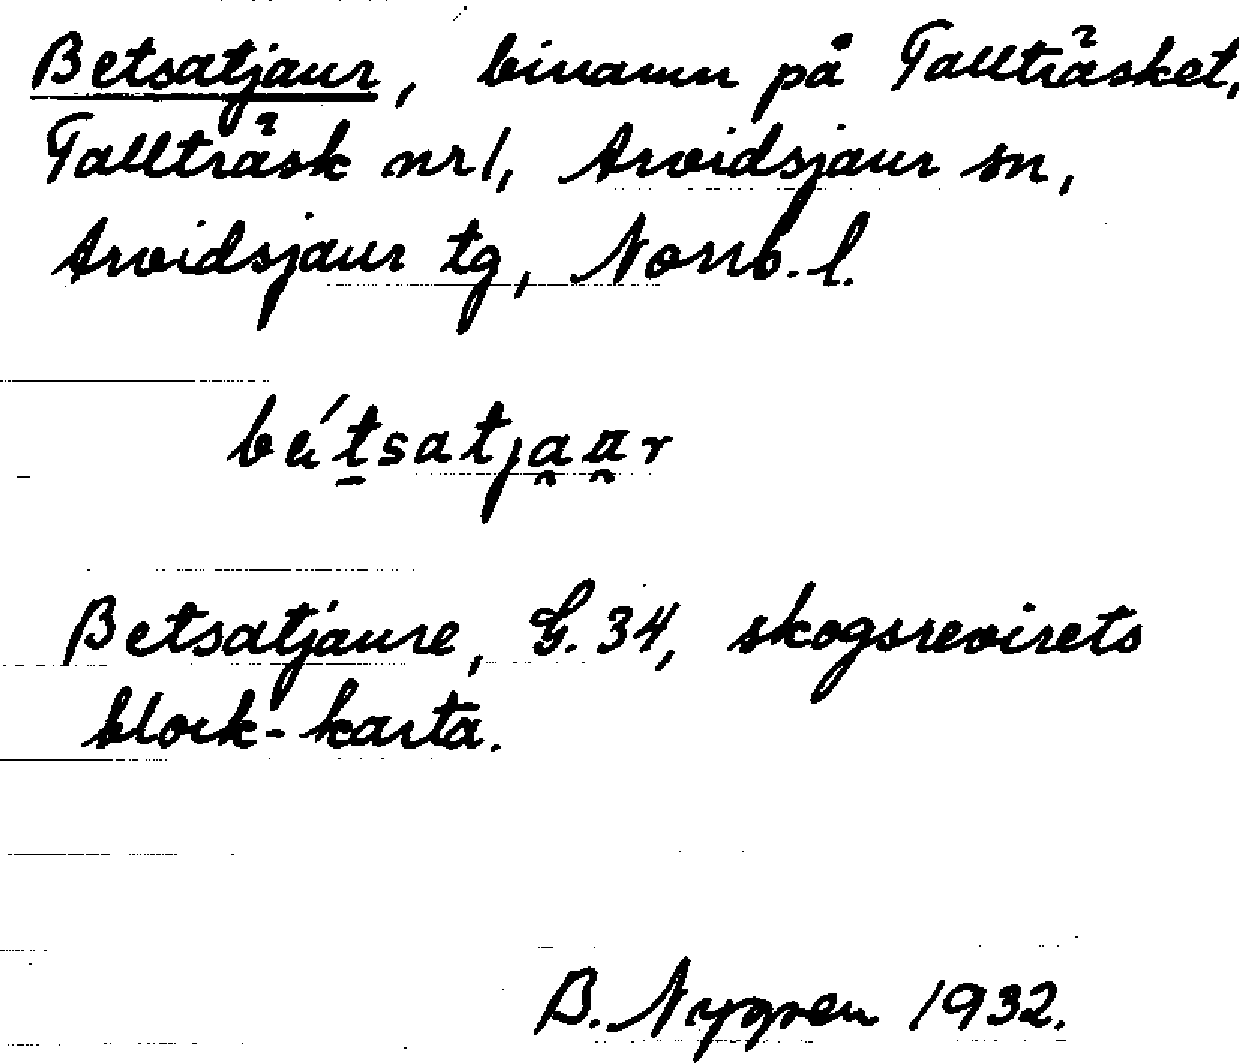 Betsatjaur, binamn på Tallträsket,
Tallträsk nr 1, Arvidsjaur sn,
Arvidsjaur tg, Norrb. l.
Betsatjaure, G. 34, skogsrevirets
block-karta.
B. Nygren 1932.